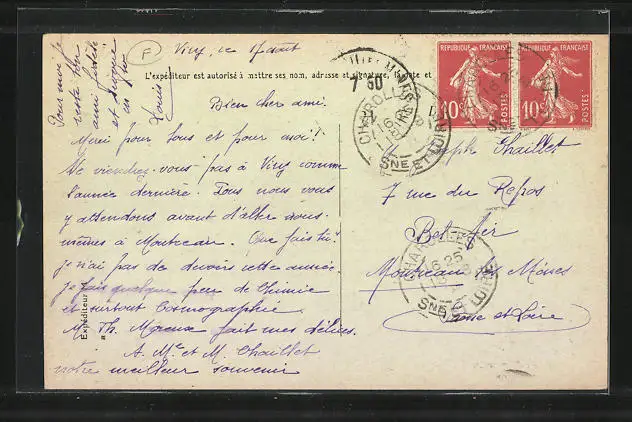 Pour moi je
reste ton
ami fidèle
et
Louis
F
Viry, ce 17 août
L'expéditeur est autorisé à mettre ses nom, adresse et signature, la date et
Bien cher ami.
Merci pour tous et pour moi!
Ne viendrez-vous pas à Viry comme
l'année dernière. Tous nous vous
y attendons avant d'aller nous-
mêmes à Montceau. Que fais-tu?
je n'ai pas de devoirs cette année.
je fais quelque peu de Chimie
et surtout Cosmographie.
M. Th. Moreux fait mes délices.
A Me et M. Chaillet
notre meilleur souvenir
Expéditeur
RÉPUBLIQUE FRANÇAISE
10c
POSTES
RÉPUBLIQUE FRANÇAISE
10c
POSTES
7 30
CHAROLLES
16 25
SNE ET LOIRE
Joseph Chaillet
7 rue du Repos
Bel Air
Montceau les Mines
Saône et Loire
CHAROLLES
16 25
SNE ET LOIRE